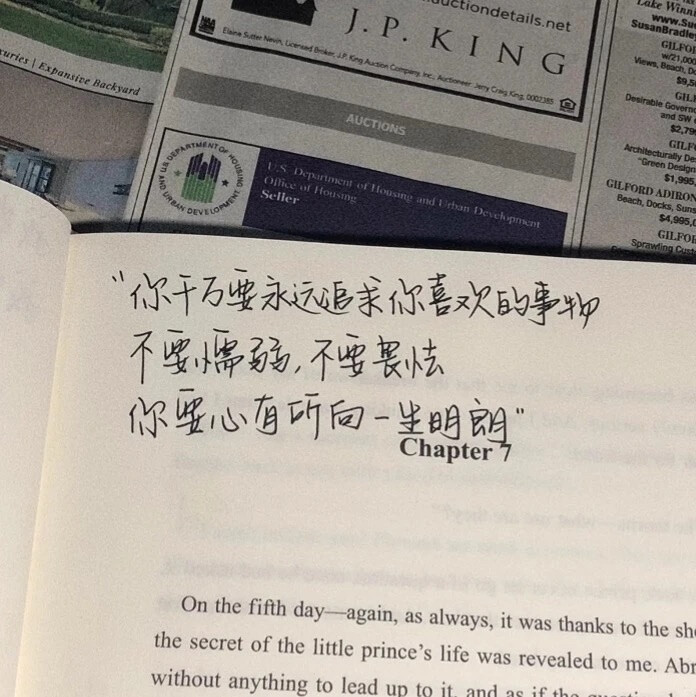 uctiondetails.net
J.P. KING
Elaine Sutter Nevin, Licensed Broker, J.P. King Auction Company, Inc., Auctioneer: Jerry Craig King, 0002385
uries | Expansive Backyard
AUCTIONS
U.S. DEPARTMENT OF HOUSING AND URBAN DEVELOPMENT
U.S. Department of Housing and Urban Development
Office of Housing
Seller
Lake Winni
www.Su
SusanBradley
GILFO
w/21,000
Views, Beach,
$9,5
GIL
Desirable Govern
and SW
$2,79
GILF
Architecturally De
"Green Design
$1,995,
GILFORD ADIRON
Beach, Docks, Suns
$4,995,0
GILFO
Sprawling Cust
“你千万要永远追求你喜欢的事物
不要懦弱,不要畏怯
你要心有所向一生明朗”
Chapter 7
On the fifth day—again, as always, it was thanks to the she
the secret of the little prince's life was revealed to me. Abr
without anything to lead up to it, and as if the question